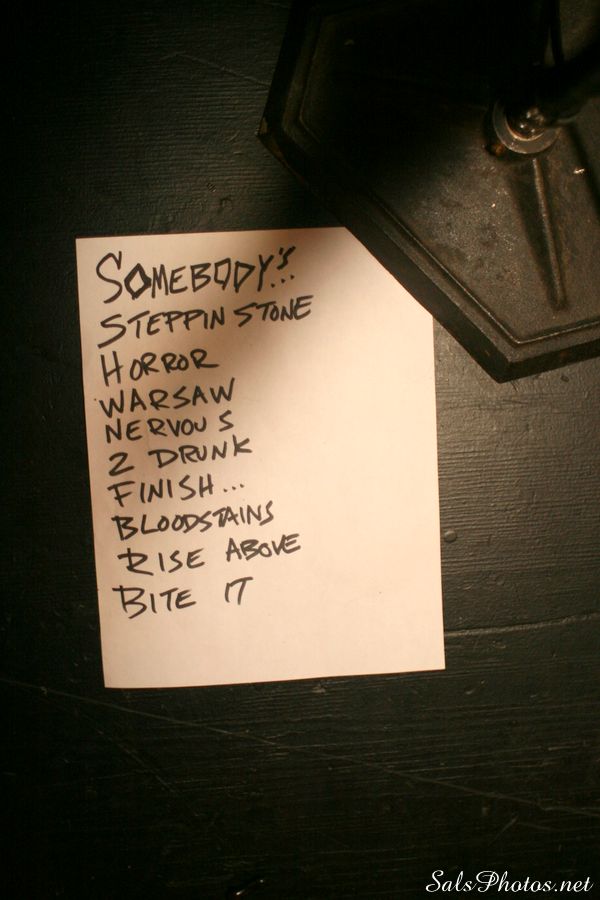 SOMEBODY'S...
STEPPIN STONE
HORROR
WARSAW
NERVOUS
2 DRUNK
FINISH...
BLOODSTAINS
RISE ABOVE
BITE IT
SalsPhotos.net